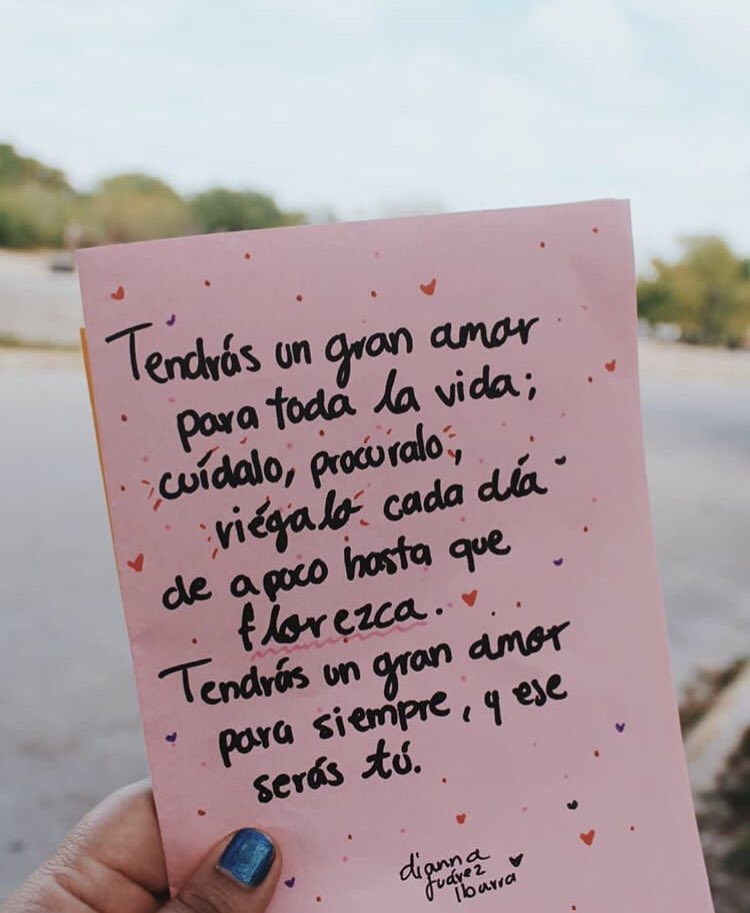 Tendrás un gran amor
para toda la vida;
cuídalo, procúralo,
riégalo cada día
de apoco hasta que
florezca.
Tendrás un gran amor
para siempre, y ese
serás tú.
dianna
Juárez
Ibarra